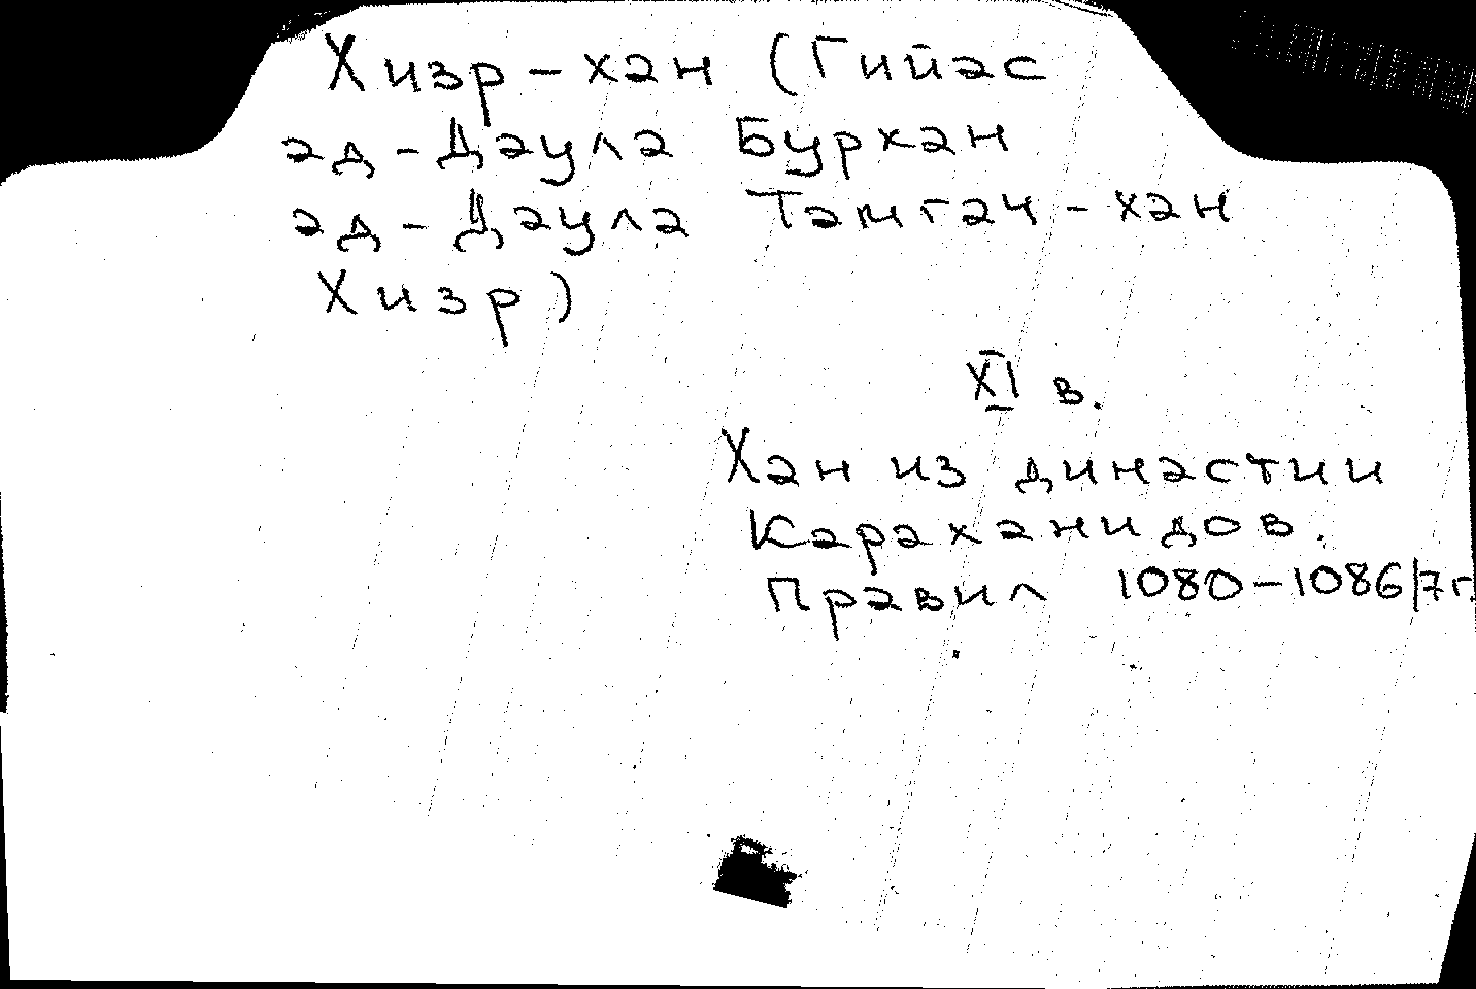 Хизр-хан (Гийас
ад-Даула Бурхан
ад-Даула Тамгач-хан
Хизр)
XI в.
Хан из династии
Караханидов.
Правил 1080-1086/7 г.